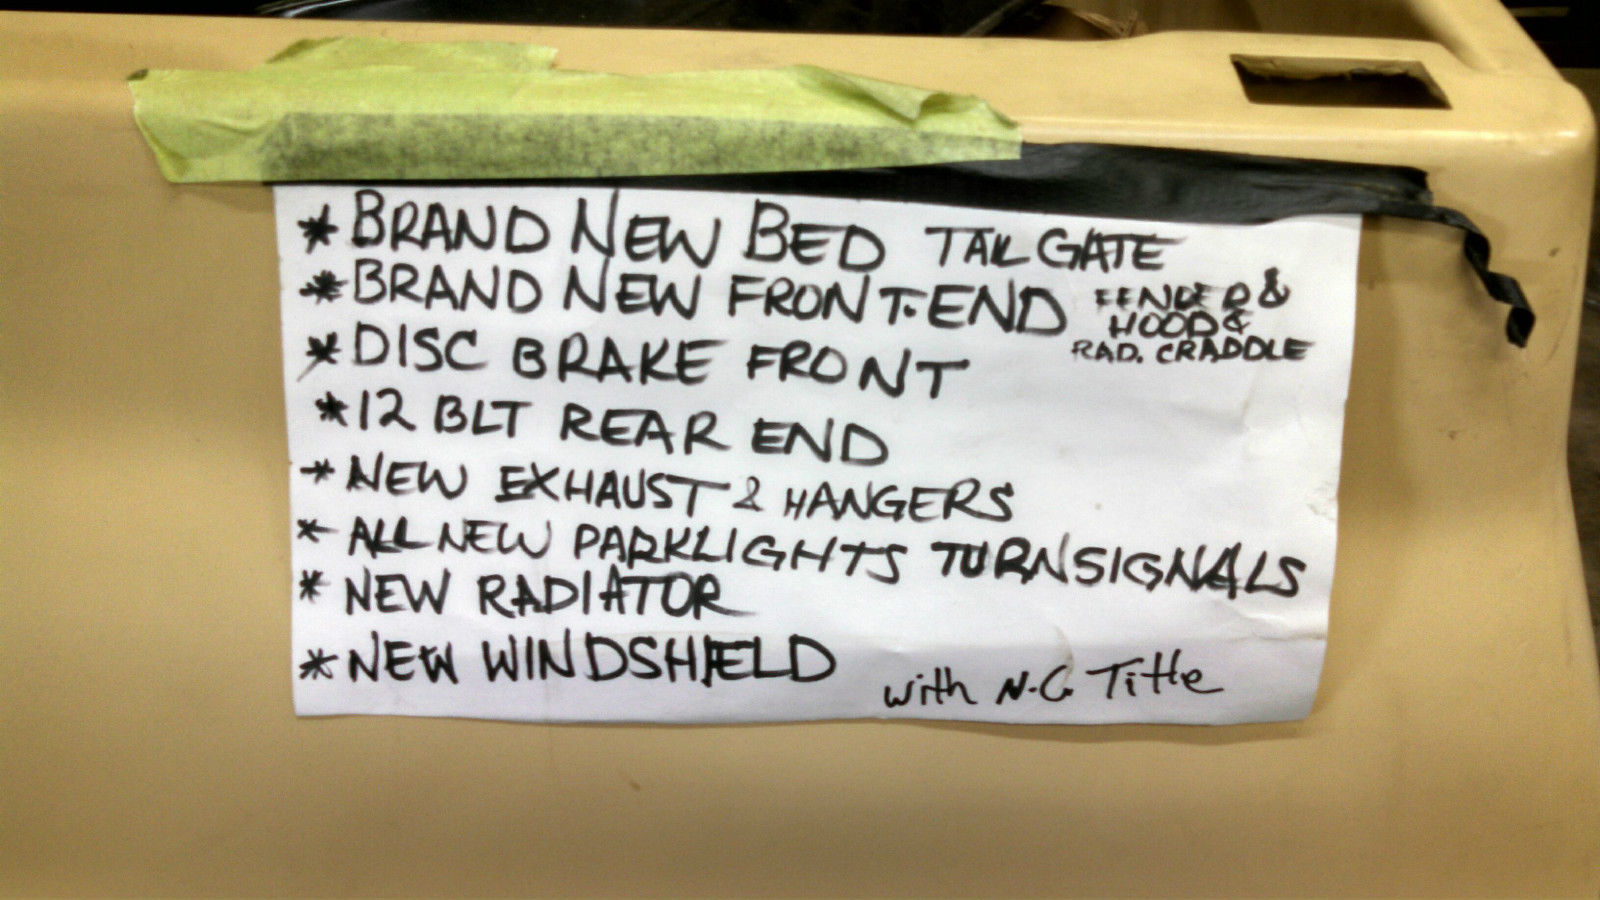 * BRAND NEW BED TAILGATE
* BRAND NEW FRONT-END FENDER &
HOOD &
RAD. CRADDLE
* DISC BRAKE FRONT
* 12 BLT REAR END
* NEW EXHAUST & HANGERS
* ALL NEW PARKLIGHTS TURNSIGNALS
* NEW RADIATOR
* NEW WINDSHIELD
with N.C. Title